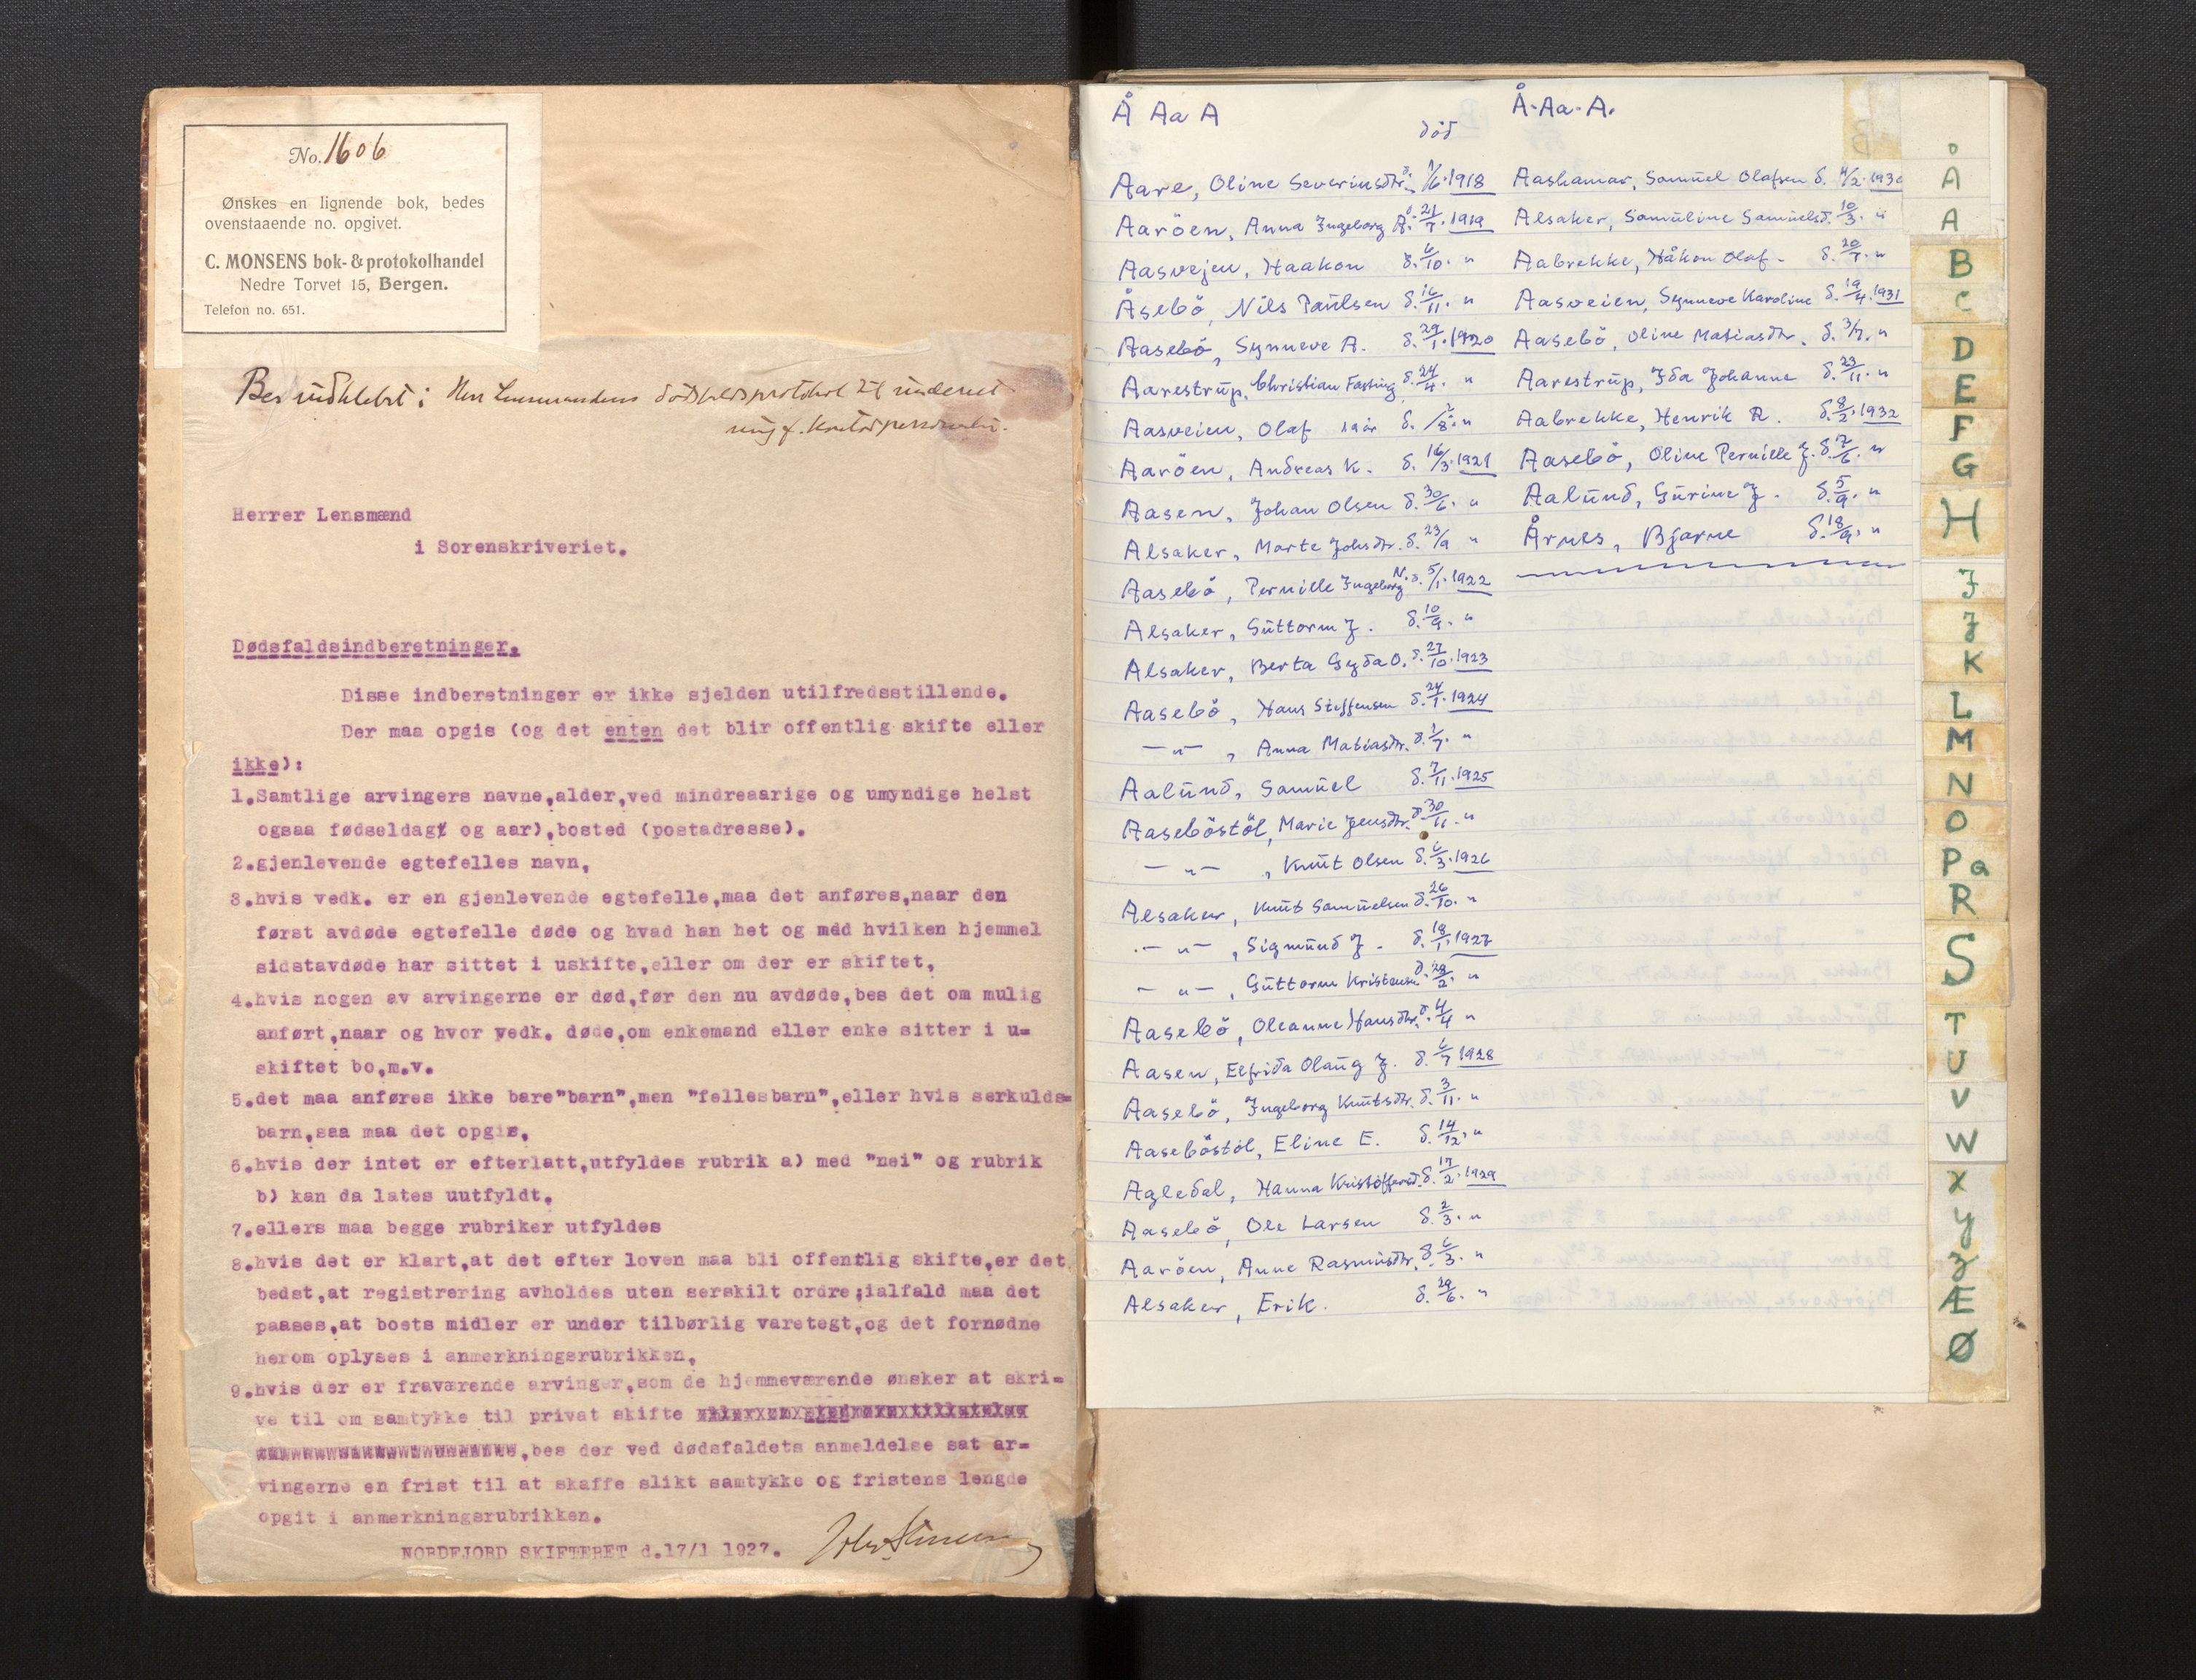 No. 1606
Ønskes en lignende bok, bedes
ovenstaaende no. opgivet.
C. MONSENS bok- & protokolhandel
Nedre Torvet 15, Bergen.
Telefon no. 651.
Herrer Lensmænd
i Sorenskriveriet.
Dødsfaldsindberetninger.
Disse indberetninger er ikke sjelden utilfredsstillende.
Der maa opgis (og det enten det blir offentlig skifte eller
ikke):
1.Samtlige arvingers navne,alder,ved mindreaarige og umyndige helst
ogsaa fødseldag og aar),bosted (postadresse).
2.gjenlevende egtefelles navn,
3.hvis vedk. er en gjenlevende egtefelle,maa det anføres,naar den
først avdøde egtefelle døde og hvad han het og med hvilken hjemmel
sidstavdøde har sittet i uskifte,eller om der er skiftet,
4.hvis nogen av arvingerne er død,før den nu avdøde,bes det om mulig
anført,naar og hvor vedk. døde,om enkemand eller enke sitter i u=
skiftet bo,m.v.
5.det maa anføres ikke bare"barn",men "fellesbarn",eller hvis serkulds=
barn,saa maa det opgis,
6.hvis der intet er efterlatt,utfyldes rubrik a) med "nei" og rubrik
b) kan da lates uutfyldt.
7.ellers maa begge rubriker utfyldes
8.hvis det er klart,at det efter loven maa bli offentlig skifte,er det
bedst,at registrering avholdes uten serskilt ordre;ialfald maa det
paases,at boets midler er under tilbørlig varetegt,og det fornødne
herom oplyses i anmerkningsrubrikken,
9.hvis der er fraværende arvinger,som de hjemmeværende ønsker at skri=
ve til om samtykke til privat skifte
,bes der ved dødsfaldets anmeldelse sat ar=
vingerne en frist til at skaffe slikt samtykke og fristens lengde
opgit i anmerkningsrubrikken.
NORDFJORD SKIFTERET d.17/1 1927.
Å Aa A
død
Aare, Oline Severinsdtr. 1/6.1918
Aaröen, Anna Ingeborg A. d. 21/7.1919
Aasvejen, Haakon d. 6/10. "
Åsebö, Nils Paulsen d. 16/11. "
Aasebö, Synneve A. d. 29/1.1920
Aarestrup, Christian Fasting d. 24/4. "
Aasveien, Olaf d. /8. "
Aaröen, Andreas K. d. 16/3.1921
Aasen, Johan Olsen d. 30/6. "
Alsaker, Marte Johsdtr. d. 23/9 "
Aasebö, Pernille Ingeborg N. d. 5/1.1922
Alsaker, Guttorm J. d. 10/9. "
Alsaker, Berta Gyda O. d. 27/10.1923
Aasebö, Hans Steffensen d. 24/1.1924
— " — , Anna Matiasdtr. d. 1/7. "
Aalund, Samuel d. 7/11.1925
Aaseböstöl, Marie Jensdtr. d. 30/11. "
— " — , Knut Olsen d. 6/3.1926
Alsaker, Knut Samuelsen d. 26/10. "
— " — , Sigmund J. d. 18/1.1927
— " — , Guttorm Kristensen d. 28/2. "
Aasebö, Oleanne Hansdtr. d. 4/4 "
Aasen, Elfrida Olaug J. d. 6/7 1928
Aasebö, Ingeborg Knutsdtr. d. 3/11. "
Aaseböstöl, Eline E. d. 14/12. "
Agledal, Hanna Kristoffersd. d. 17/2.1929
Aasebö, Ole Larsen d. 2/3. "
Aaröen, Anne Rasmusdtr. d. 6/3. "
Alsaker, Erik. d. 29/6. "
Å-Aa-A.
Aashamar, Samuel Olafsen d. 4/2.1930
Alsaker, Samuline Samuelsd. 10/3. "
Aabrekke, Håkon Olaf- d. 20/7. "
Aasveien, Synneve Karoline d. 19/4.1931
Aasebö, Oline Matiasdtr. d. 3/7. "
Aarestrup, Ida Johanne d. 23/11. "
Aabrekke, Henrik R. d. 8/2.1932
Aasebö, Oline Pernille J. d. 7/6. "
Aalund, Gurine J. d. 5/9. "
Årnes, Bjarne d. 18/9. "
Å
A
B
C
D
E
F
G
H
I
J
K
L
M
N
O
P Q
R
S
T
U
V
W
X
Y
Z
Æ
Ø